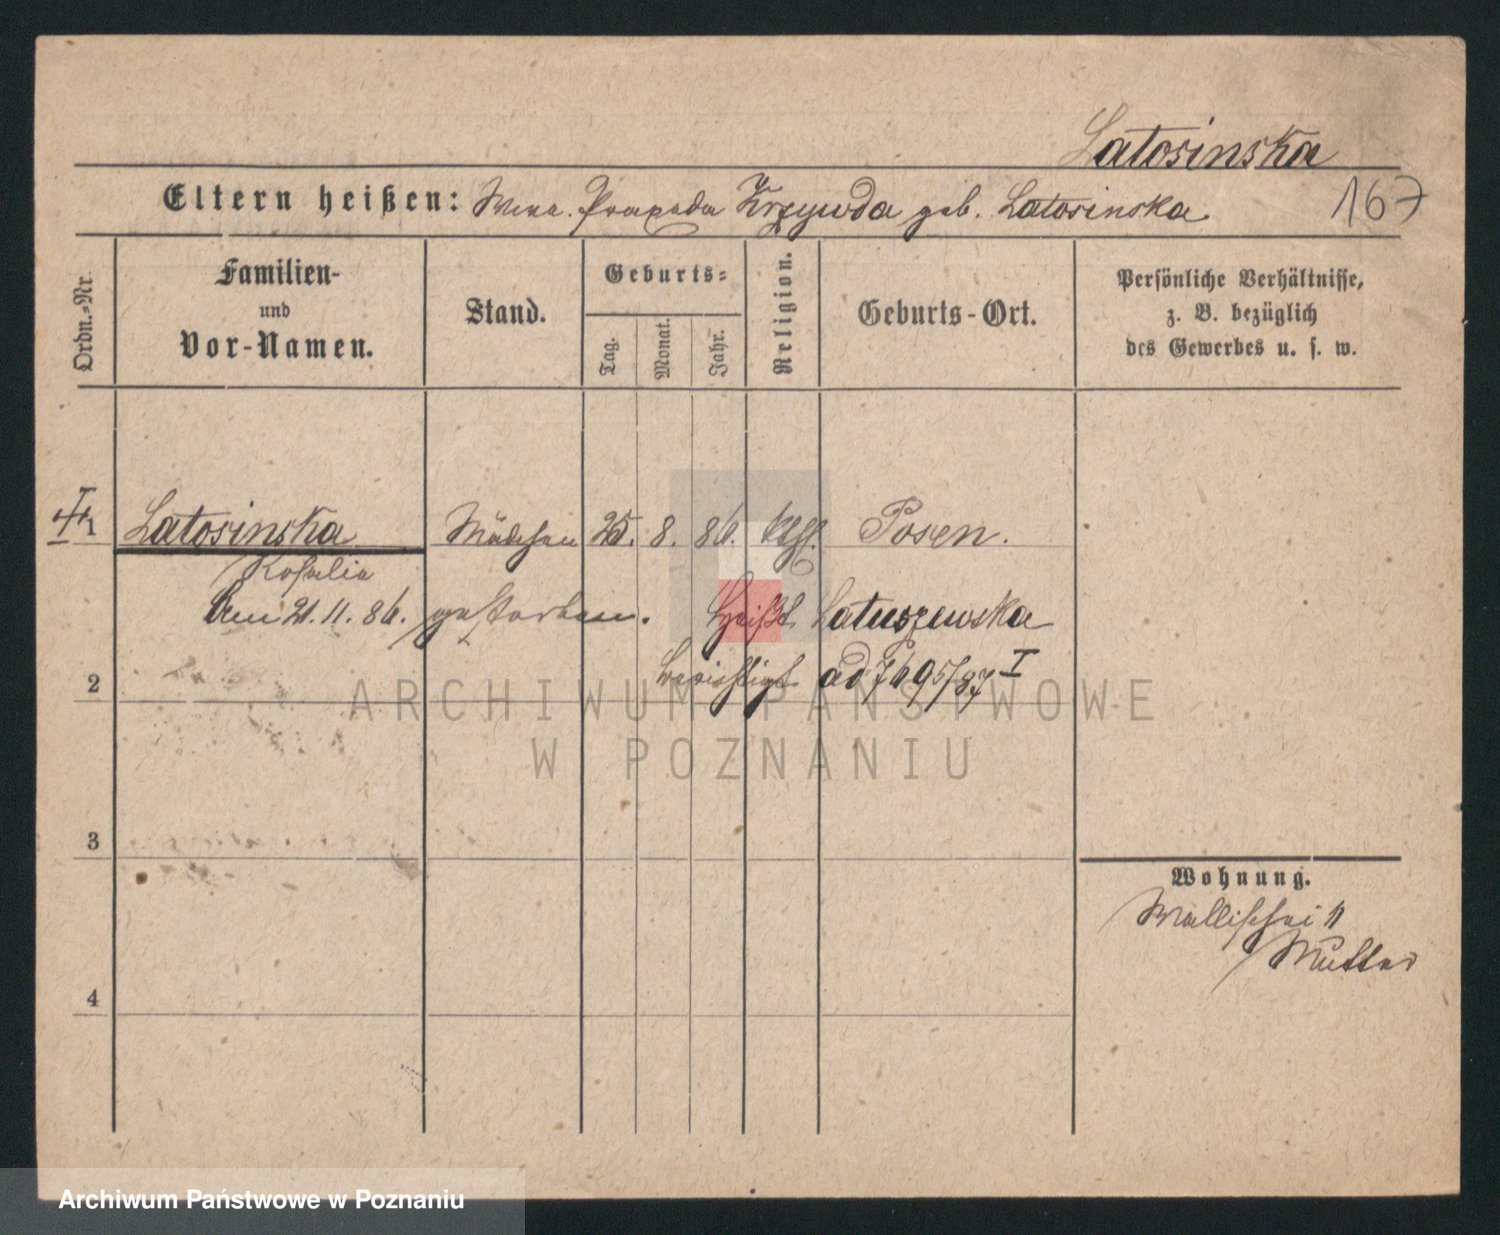 Latosinska
Eltern heißen: Wwe. Praxeda Krzywda geb. Latosinska
167
Ordn.-Nr.
Familien-
und
Vor-Namen.
Stand.
Geburts-
Tag.
Monat.
Jahr.
Religion.
Geburts-Ort.
Persönliche Verhältnisse,
z. B. bezüglich
des Gewerbes u. s. w.
1 Latosinska Mädchen 25. 8. 86. kth. Posen.
Rosalia
Am 21.11.86. gestorben. heißt Latuszewska
berichtigt ad 7695/87 I
2
ARCHIWUM PAŃSTWOWE
W POZNANIU
3
Wohnung.
Wallischei 11
Mutter
4
Archiwum Państwowe w Poznaniu